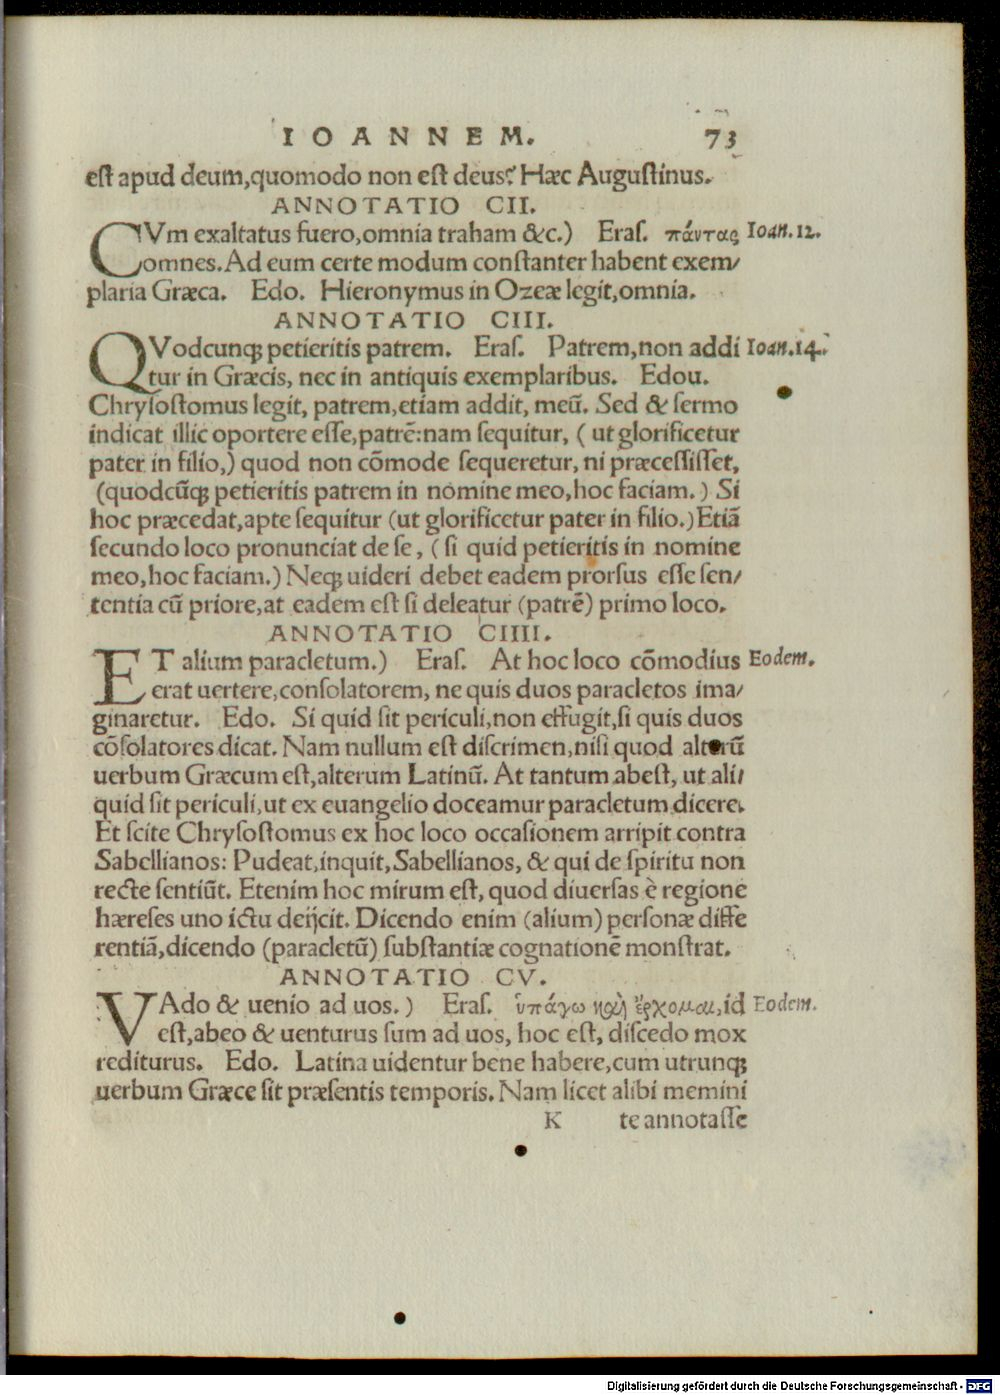 IOANNEM. 73
est apud deum,quomodo non est deus? Hæc Augustinus.
ANNOTATIO CII.
CVm exaltatus fuero,omnia traham &c.) Eras. πάντας Ioan.12.
omnes.Ad eum certe modum constanter habent exem/
plaria Græca. Edo. Hieronymus in Ozeæ legit,omnia.
ANNOTATIO CIII.
QVodcunq; petieritis patrem. Eras. Patrem,non addi Ioan.14.
tur in Græcis, nec in antiquis exemplaribus. Edou.
Chrysostomus legit, patrem,etiam addit, meū. Sed & sermo
indicat illic oportere esse,patrē:nam sequitur, ( ut glorificetur
pater in filio,) quod non cōmode sequeretur, ni præcessisset,
(quodcūq; petieritis patrem in nomine meo,hoc faciam.) Si
hoc præcedat,apte sequitur (ut glorificetur pater in filio.)Etiā
secundo loco pronunciat de se, ( si quid petieritis in nomine
meo,hoc faciam.) Neq; uideri debet eadem prorsus esse sen/
tentia cū priore,at eadem est si deleatur (patrē) primo loco.
ANNOTATIO CIIII.
ET alium paracletum.) Eras. At hoc loco cōmodius Eodem.
erat uertere,consolatorem, ne quis duos paracletos ima/
ginaretur. Edo. Si quid sit periculi,non effugit,si quis duos
cōsolatores dicat. Nam nullum est discrimen,nisi quod alterū
uerbum Græcum est,alterum Latinū. At tantum abest, ut ali/
quid sit periculi,ut ex euangelio doceamur paracletum dicere.
Et scite Chrysostomus ex hoc loco occasionem arripit contra
Sabellianos: Pudeat,inquit,Sabellianos, & qui de spiritu non
recte sentiūt. Etenim hoc mirum est, quod diuersas è regione
hæreses uno ictu deijcit. Dicendo enim (alium) personæ diffe
rentiā,dicendo (paracletū) substantiæ cognationē monstrat.
ANNOTATIO CV.
VAdo & uenio ad uos.) Eras. ὑπάγω καὶ ἔρχομαι,id Eodem.
est,abeo & uenturus sum ad uos, hoc est, discedo mox
rediturus. Edo. Latina uidentur bene habere,cum utrunq;
uerbum Græce sit præsentis temporis. Nam licet alibi memini
K te annotasse
Digitalisierung gefördert durch die Deutsche Forschungsgemeinschaft - DFG